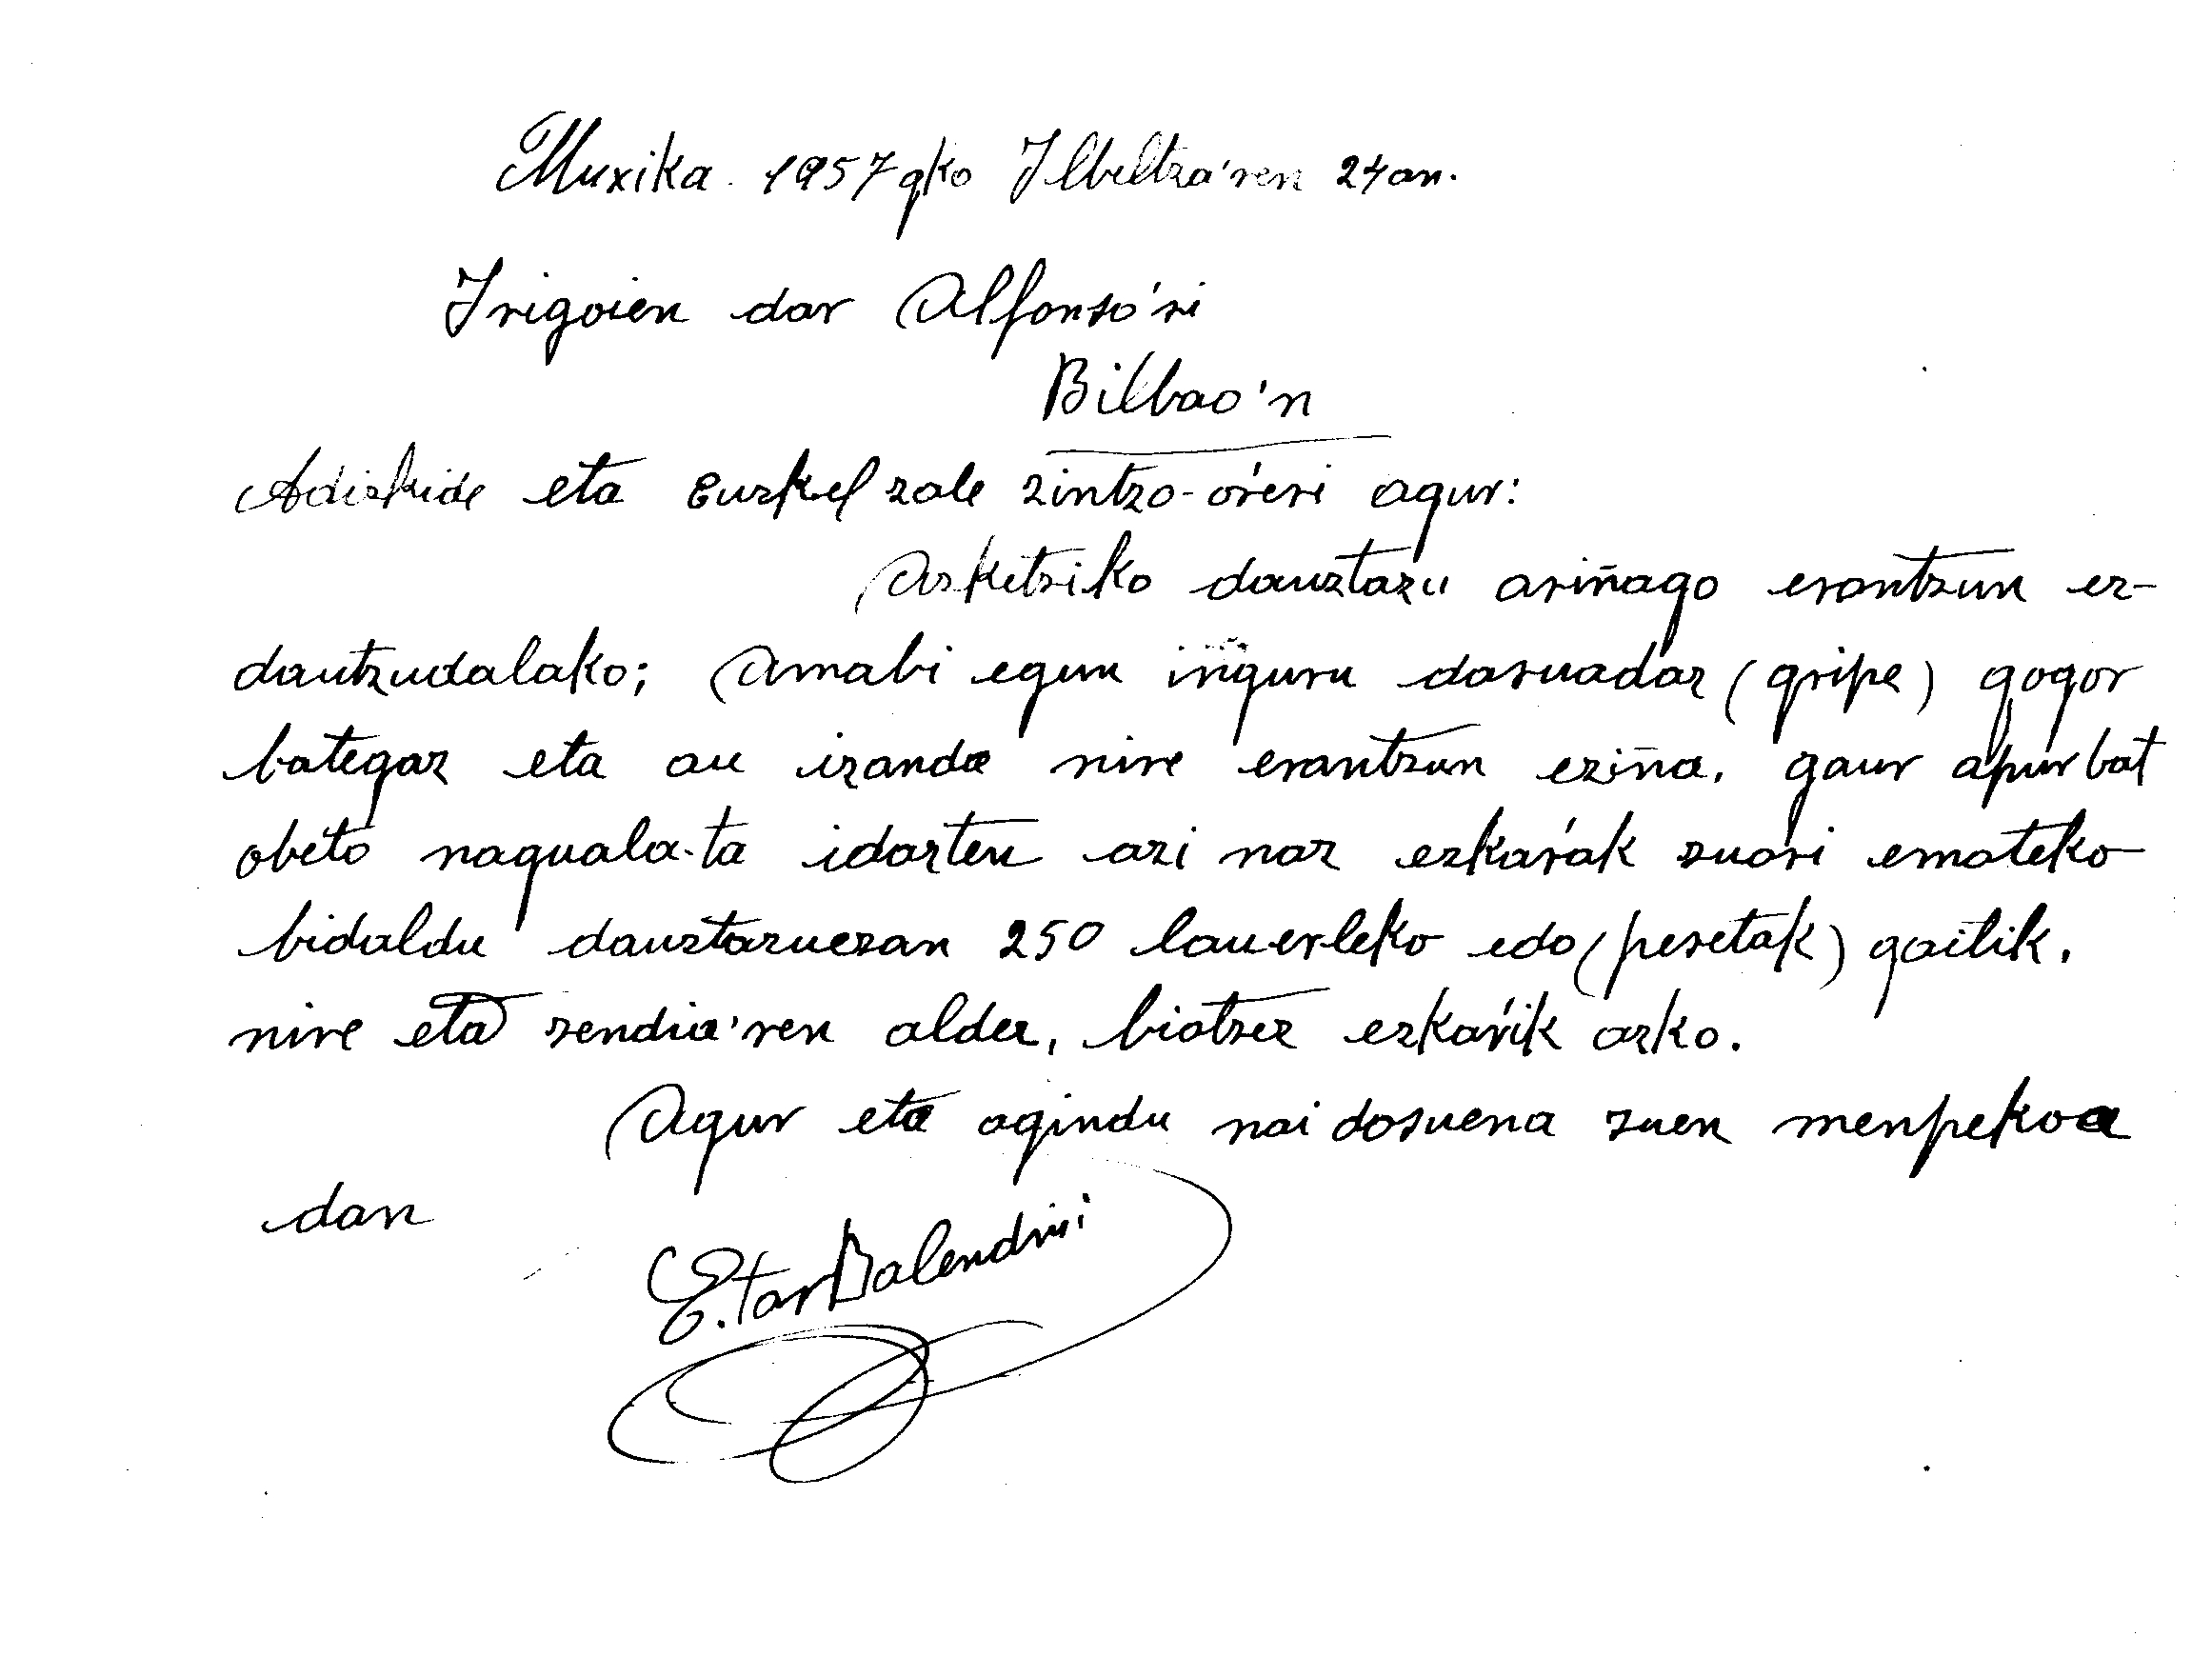 Muxika. 1957gko Ilbeltza'ren 24an.
Irigoien dar Alfonso'ri
Bilbao'n
Adizkide eta Euzkel zale zintzo-oŕeri agur:
Azketziko dauztazu ariñago erantzun ez-
dautzudalako; Amabi egun iñguru daruadaz (gripe) gogor
bategaz eta au izanda nire erantzun eziña, gaur apur bat
obeto naguala-ta idazten azi naz ezkaŕak zuori emateko
bidaldu dauztazuezan 250 lauerleko edo (pesetak) gaitik,
nire eta sendia'ren aldez, biotzez ezkaŕik asko.
Agur eta agindu nai dozuena zuen menpekoa
dan
E.tar Balendiñ